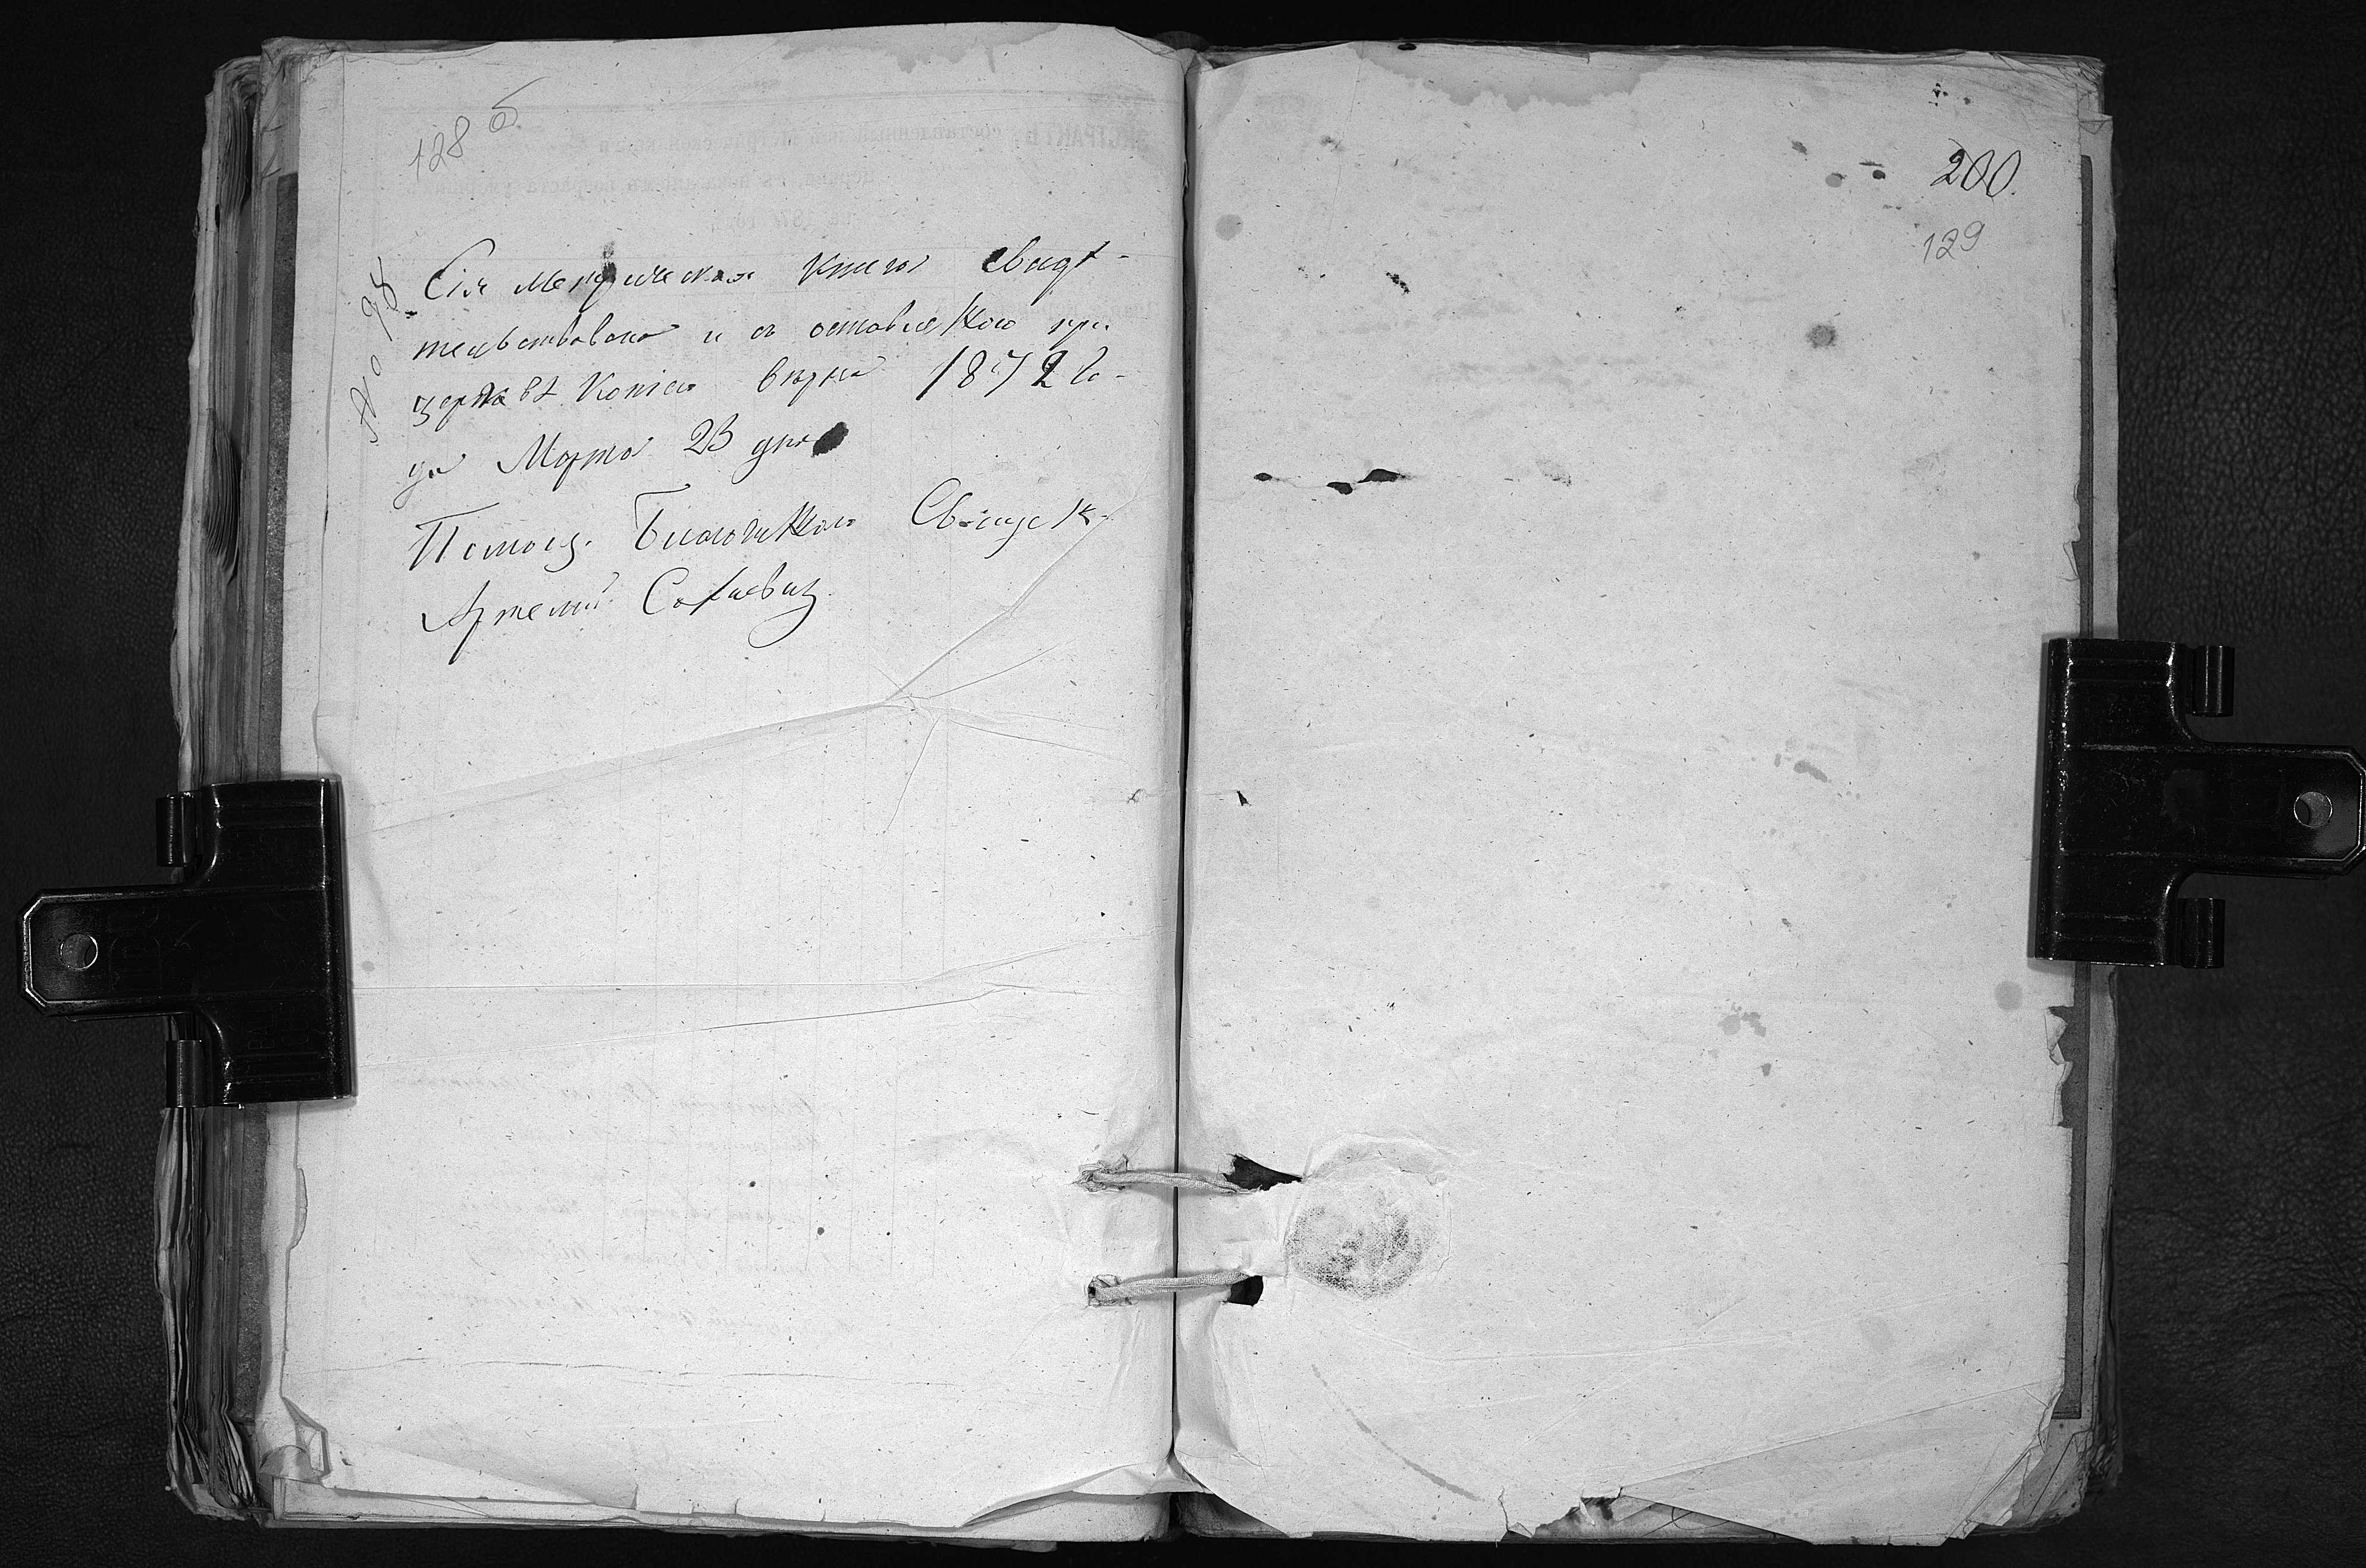 128 б
№ 98
Сія метрическая книга свидѣ-
тельствована и съ оставленною при
церквѣ копіею вѣрна 1872 го-
да Марта 23 дня
Помощ. Благочиннаго Священ.
Артемій
200.
129